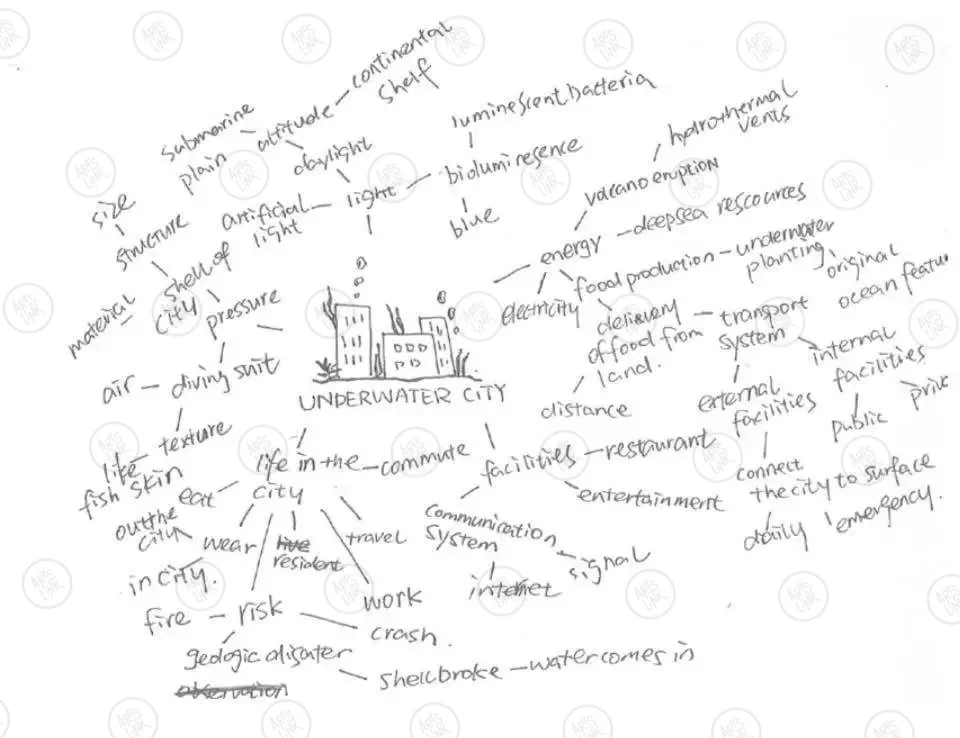 continental
shelf
submarine
plain
altitude
daylight
luminescent bacteria
bioluminesence
blue
light
artificial
light
size
structure
material
shell of
city
pressure
air
diving suit
texture
like
fish skin
hydrothermal
vents
volcano eruption
energy
deepsea rescources
electricity
food production
underwater
planting
original
ocean featu
delivery
of food from
land.
distance
transport
system
internal
facilities
public
priv
external
facilities
connect
the city to surface
daily
emergency.
UNDERWATER CITY
life in the
city
commute
eat
wear
out the
city
in city.
live
resident
travel
work
risk
fire
crash.
geologic disater
observation
shell broke
water comes in
facilities
restaurant
entertainment
communication
system
signal
internet
ARTS
LINK